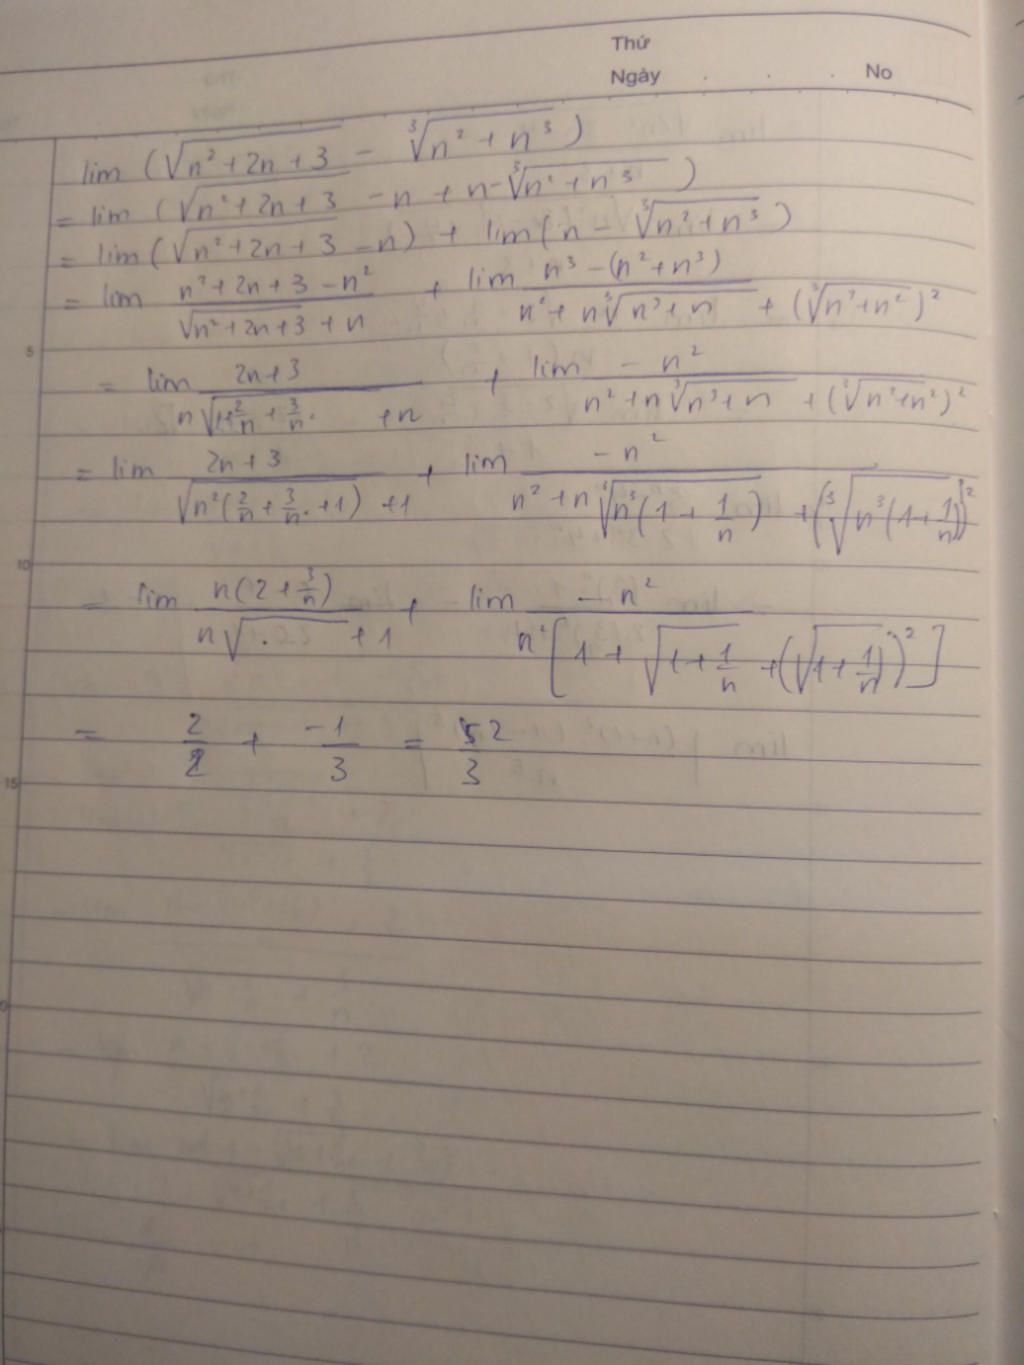 Thứ
Ngày . . . No
lim (√(n²+2n+3) − ³√(n²+n³))
= lim (√(n²+2n+3) − n + n − ³√(n²+n³))
= lim (√(n²+2n+3) − n) + lim (n − ³√(n²+n³))
= lim (n²+2n+3−n²)/(√(n²+2n+3) + n) + lim (n³−(n²+n³))/(n²+n³√(n³+n) + (³√(n³+n²))²)
5
= lim (2n+3)/(n√(1+2/n+3/n.) +n) + lim (−n²)/(n²+n³√(n³+n) + (³√(n³+n²))²)
= lim (2n+3)/(√(n²(2/n+3/n.+1)) +1) + lim (−n²)/(n²+n³√(n³(1+1/n)) + (³√(n³(1+1/n)))²)
10
= lim (n(2+3/n))/(n√. +1) + lim (−n²)/(n²[1+√(1+1/n) + (√(1+1/n))²])
= 2/2 + −1/3 = 2/3
15